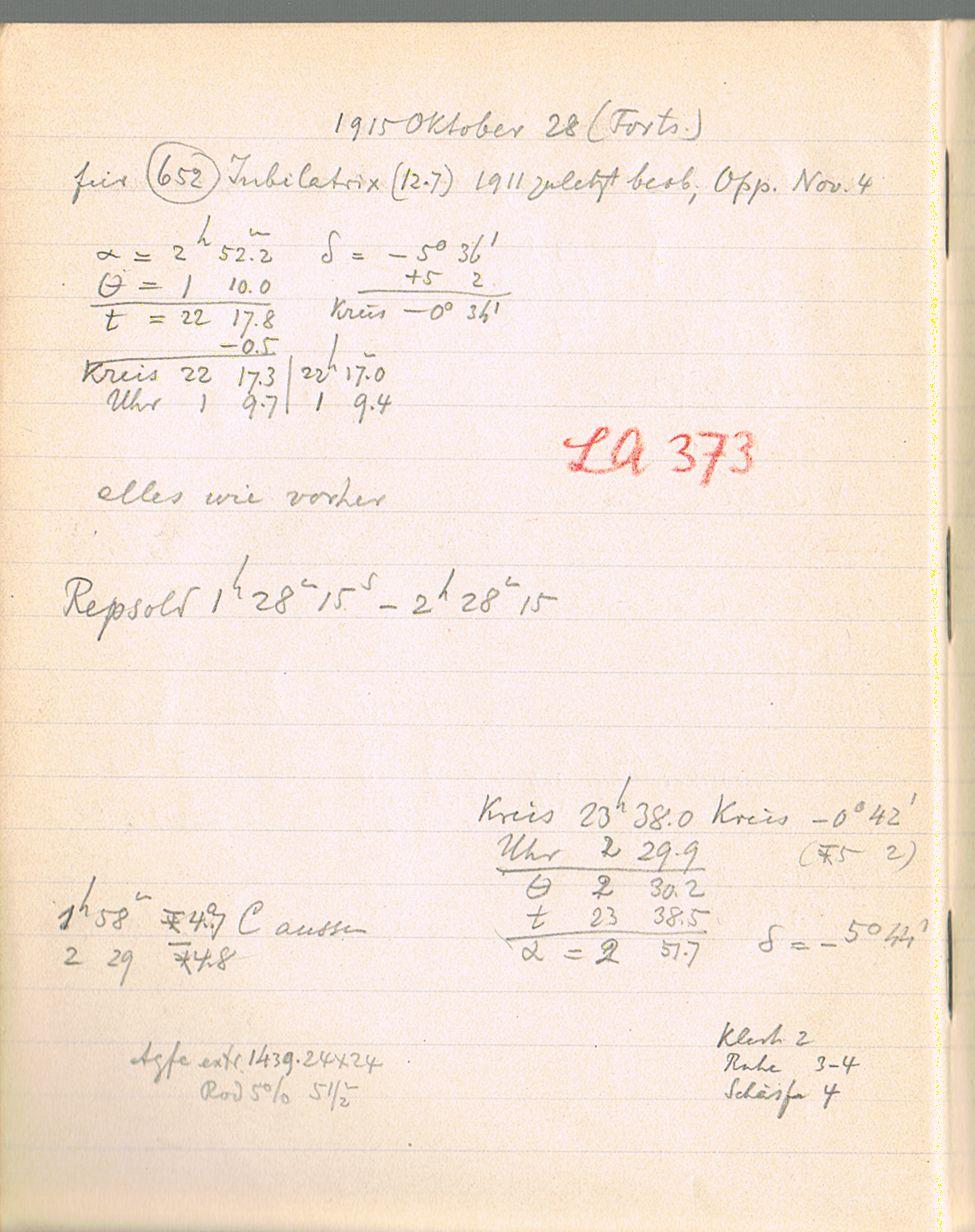 1915 Oktober 28 (Forts.)
für (652) Jubilatrix (12.7) 1911 zuletzt beob, Opp. Nov. 4
α = 2ʰ 52.2ᵐ δ = −5° 36'
θ = 1 10.0 +5 2
t = 22 17.8 Kreis −0° 34'
−0.5
Kreis 22 17.3 | 22ʰ 17.0ᵐ
Uhr 1 9.7 | 1 9.4
LA 373
alles wie vorher
Repsold 1ʰ 28ᵐ 15ˢ − 2ʰ 28ᵐ 15
Kreis 23ʰ 38.0 Kreis −0° 42'
Uhr 2 29.9 (∓5 2)
θ 2 30.2
t 23 38.5
α = 2 51.7 δ = −5° 44'
1ʰ 58ᵐ −4.7° C aussen
2 29 −4.8
Agfa extr. 1439. 24x24
Rod 5% 5½ᵐ
Klarh. 2
Ruhe 3-4
Schärfe 4